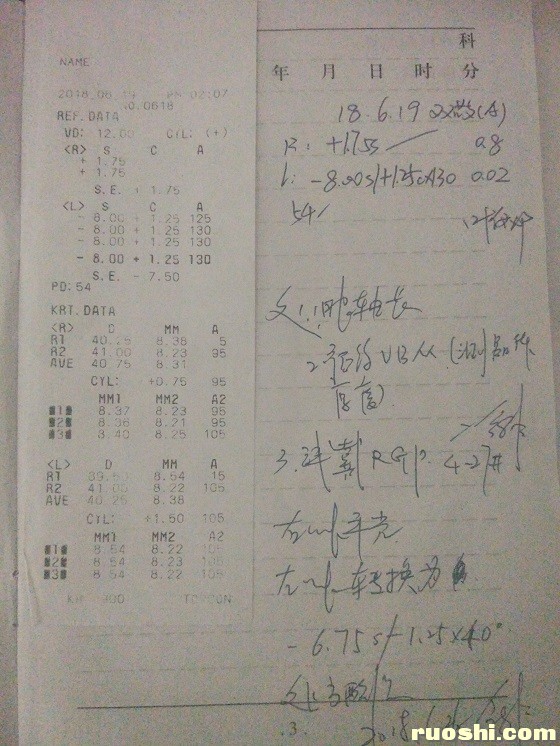 NAME
2018_06_19 PM 02:07
NO.0618
REF.DATA
VD: 12.00 CYL: (+)
<R> S C A
+ 1.75
+ 1.75
S.E. + 1.75
<L> S C A
- 8.00 + 1.25 125
- 8.00 + 1.25 130
- 8.00 + 1.25 130
- 8.00 + 1.25 130
S.E. - 7.50
PD: 54
KRT.DATA
<R> D MM A
R1 40.25 8.38 5
R2 41.00 8.23 95
AVE 40.75 8.31
CYL: +0.75 95
MM1 MM2 A2
1 8.37 8.23 95
2 8.36 8.21 95
3 8.40 8.25 105
<L> D MM A
R1 39.50 8.54 15
R2 41.00 8.22 105
AVE 40.25 8.38
CYL: +1.50 105
MM1 MM2 A2
1 8.54 8.22 105
2 8.54 8.23 106
3 8.54 8.22 105
TOPCON
科
年 月 日 时 分
18.6.19 双散(A)
R: +1.75s 0.8
L: -8.00s/+1.25cx130 0.02
54
眼轴长
厚度)
3. 试戴RGP.
左眼平光
左眼转换为
-6.75s/-1.25x40°
.3.
ruoshi.com